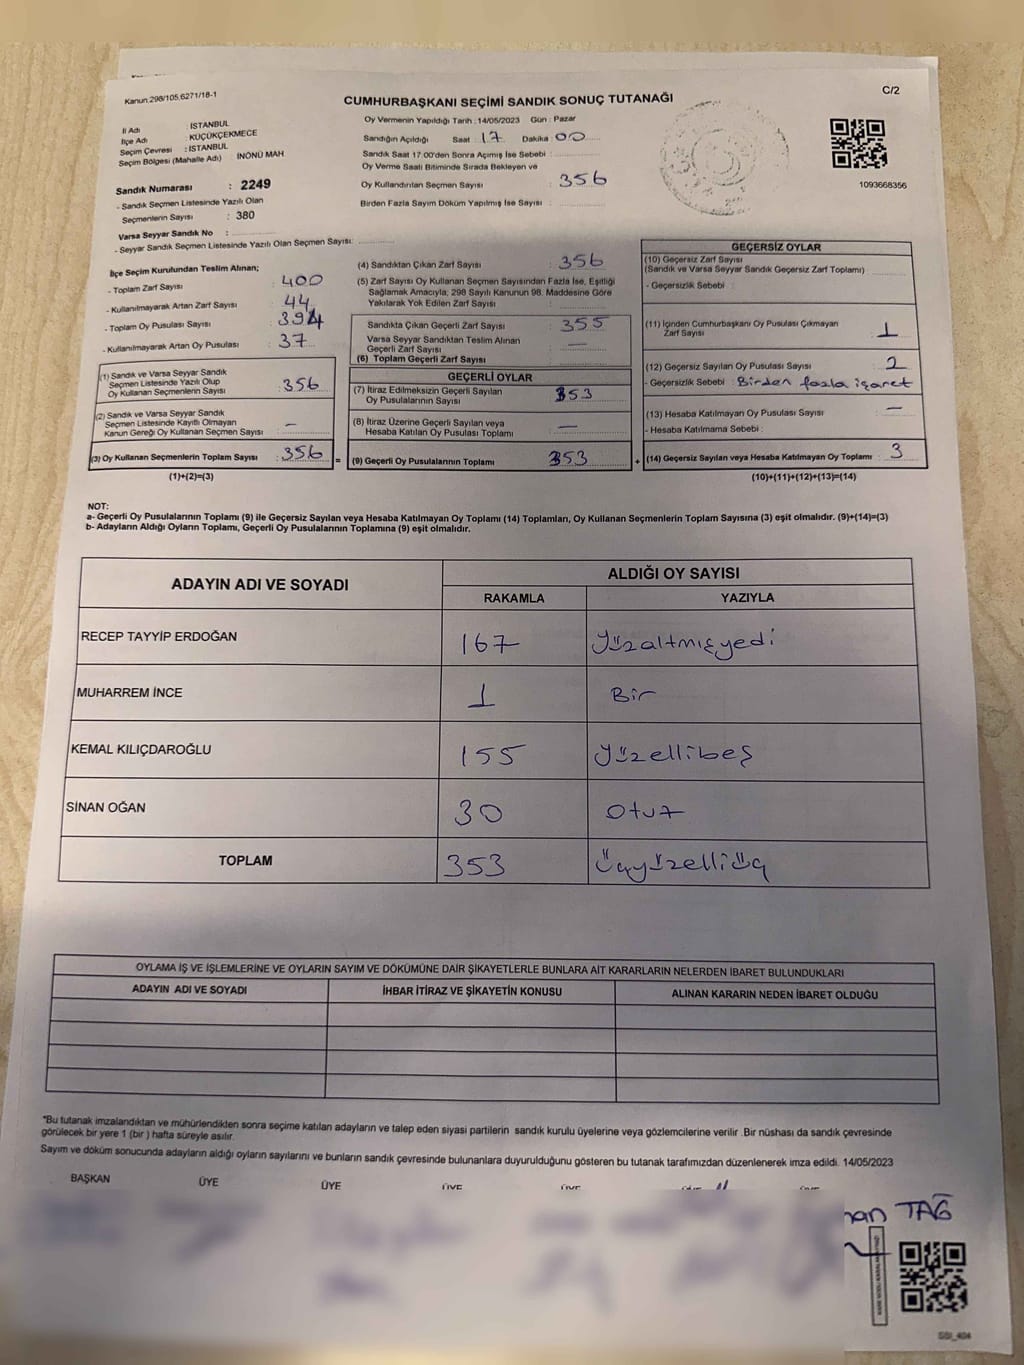 Kanun:298/105,6271/18-1
C/2
CUMHURBAŞKANI SEÇİMİ SANDIK SONUÇ TUTANAĞI
Oy Vermenin Yapıldığı Tarih :14/05/2023 Gün : Pazar
İl Adı : İSTANBUL
İlçe Adı : KÜÇÜKÇEKMECE
Seçim Çevresi : İSTANBUL
Seçim Bölgesi (Mahalle Adı) İNÖNÜ MAH
Sandık Numarası : 2249
- Sandık Seçmen Listesinde Yazılı Olan
Seçmenlerin Sayısı : 380
Varsa Seyyar Sandık No :
- Seyyar Sandık Seçmen Listesinde Yazılı Olan Seçmen Sayısı:
Sandığın Açıldığı Saat 17 Dakika 00
Sandık Saat 17.00'den Sonra Açımış İse Sebebi :
Oy Verme Saati Bitiminde Sırada Bekleyen ve
Oy Kullandırılan Seçmen Sayısı : 356
Birden Fazla Sayım Döküm Yapılmış İse Sayısı :
1093668356
İlçe Seçim Kurulundan Teslim Alınan;
- Toplam Zarf Sayısı : 400
- Kullanılmayarak Artan Zarf Sayısı : 44
- Toplam Oy Pusulası Sayısı : 394
- Kullanılmayarak Artan Oy Pusulası : 37
(1) Sandık ve Varsa Seyyar Sandık
Seçmen Listesinde Yazılı Olup
Oy Kullanan Seçmenlerin Sayısı : 356
(2) Sandık ve Varsa Seyyar Sandık
Seçmen Listesinde Kayıtlı Olmayan
Kanun Gereği Oy Kullanan Seçmen Sayısı : –
(3) Oy Kullanan Seçmenlerin Toplam Sayısı : 356
(1)+(2)=(3)
(4) Sandıktan Çıkan Zarf Sayısı : 356
(5) Zarf Sayısı Oy Kullanan Seçmen Sayısından Fazla İse, Eşitliği
Sağlamak Amacıyla, 298 Sayılı Kanunun 98. Maddesine Göre
Yakılarak Yok Edilen Zarf Sayısı :
Sandıkta Çıkan Geçerli Zarf Sayısı : 355
Varsa Seyyar Sandıktan Teslim Alınan
Geçerli Zarf Sayısı : –
(6) Toplam Geçerli Zarf Sayısı
GEÇERLİ OYLAR
(7) İtiraz Edilmeksizin Geçerli Sayılan
Oy Pusulalarının Sayısı : 353
(8) İtiraz Üzerine Geçerli Sayılan veya
Hesaba Katılan Oy Pusulası Toplamı : –
= (9) Geçerli Oy Pusulalarının Toplamı 353
GEÇERSİZ OYLAR
(10) Geçersiz Zarf Sayısı
(Sandık ve Varsa Seyyar Sandık Geçersiz Zarf Toplamı)
- Geçersizlik Sebebi :
(11) İçinden Cumhurbaşkanı Oy Pusulası Çıkmayan
Zarf Sayısı : 1
(12) Geçersiz Sayılan Oy Pusulası Sayısı : 2
- Geçersizlik Sebebi : Birden fazla işaret
(13) Hesaba Katılmayan Oy Pusulası Sayısı : –
- Hesaba Katılmama Sebebi :
+ (14) Geçersiz Sayılan veya Hesaba Katılmayan Oy Toplamı : 3
(10)+(11)+(12)+(13)=(14)
NOT:
a- Geçerli Oy Pusulalarının Toplamı (9) ile Geçersiz Sayılan veya Hesaba Katılmayan Oy Toplamı (14) Toplamları, Oy Kullanan Seçmenlerin Toplam Sayısına (3) eşit olmalıdır. (9)+(14)=(3)
b- Adayların Aldığı Oyların Toplamı, Geçerli Oy Pusulalarının Toplamına (9) eşit olmalıdır.
ADAYIN ADI VE SOYADI ALDIĞI OY SAYISI
RAKAMLA YAZIYLA
RECEP TAYYİP ERDOĞAN 167 yüzaltmışyedi
MUHARREM İNCE 1 Bir
KEMAL KILIÇDAROĞLU 155 yüzellibeş
SİNAN OĞAN 30 Otuz
TOPLAM 353 üçyüzelliüç
OYLAMA İŞ VE İŞLEMLERİNE VE OYLARIN SAYIM VE DÖKÜMÜNE DAİR ŞİKAYETLERLE BUNLARA AİT KARARLARIN NELERDEN İBARET BULUNDUKLARI
ADAYIN ADI VE SOYADI İHBAR İTİRAZ VE ŞİKAYETİN KONUSU ALINAN KARARIN NEDEN İBARET OLDUĞU
*Bu tutanak imzalandıktan ve mühürlendikten sonra seçime katılan adayların ve talep eden siyasi partilerin sandık kurulu üyelerine veya gözlemcilerine verilir .Bir nüshası da sandık çevresinde
görülecek bir yere 1 (bir ) hafta süreyle asılır.
Sayım ve döküm sonucunda adayların aldığı oyların sayılarını ve bunların sandık çevresinde bulunanlara duyurulduğunu gösteren bu tutanak tarafımızdan düzenlenerek imza edildi. 14/05/2023
BAŞKAN ÜYE ÜYE ÜYE ÜYE
TAĞ
SSI_404